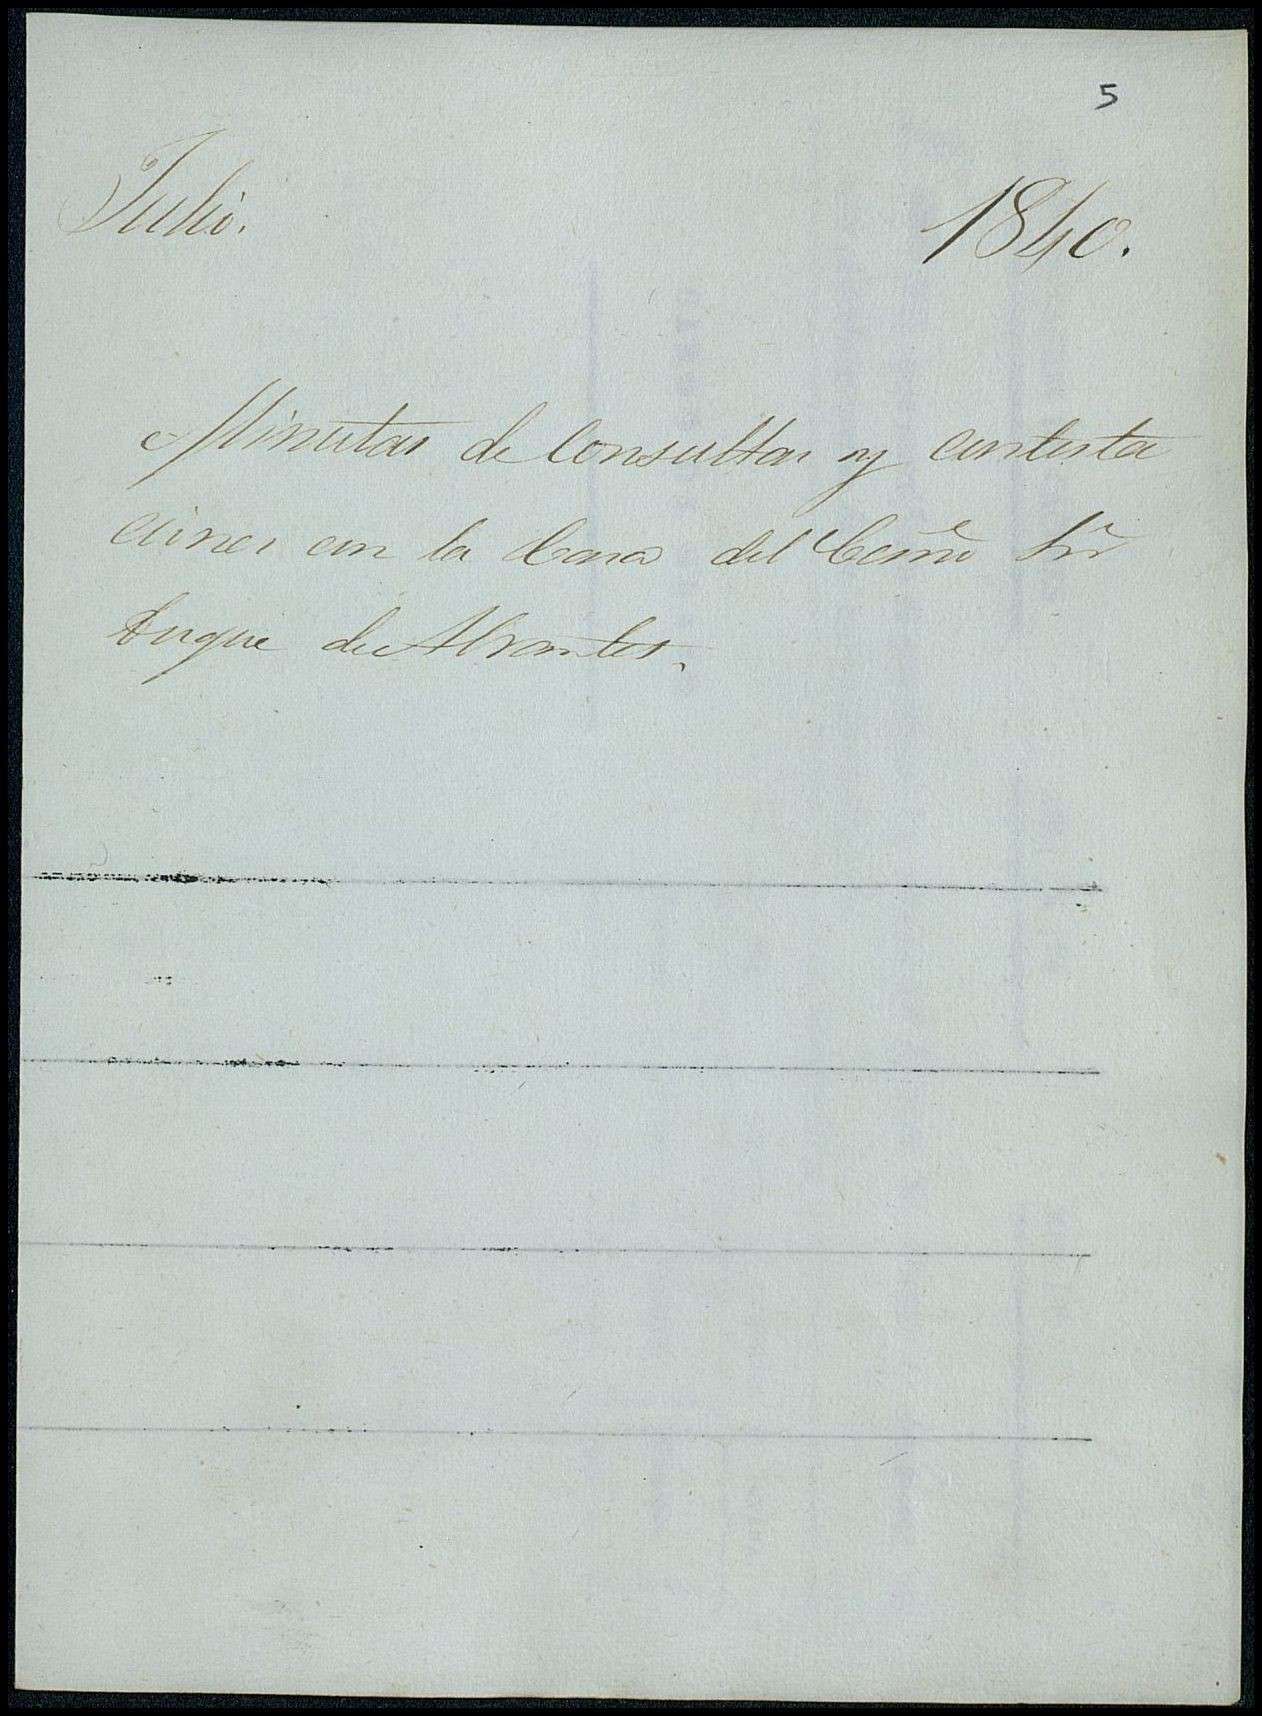 5
Julio. 1840.
Minutas de Consultas y contesta
ciones con la Casa del Ecsmo Sr
Duque de Abrantes.